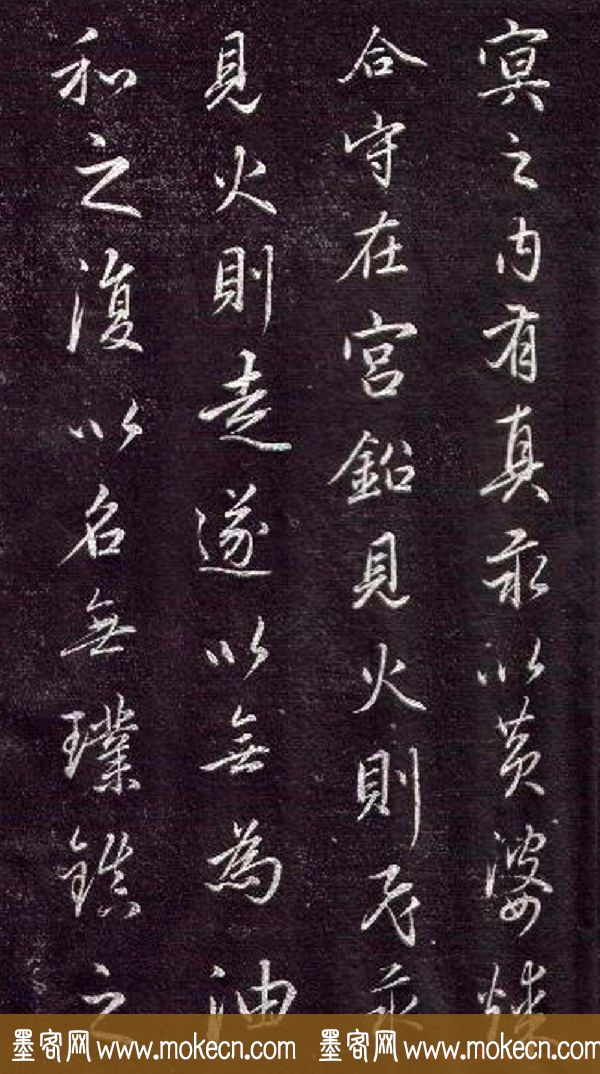 冥之内有真汞以黄婆
合守在宮鉛見火則汞
見火則走遂以無為油
和之復以名無璞鎮之
墨客网 www.mokecn.com 墨客网 www.mokecn.com